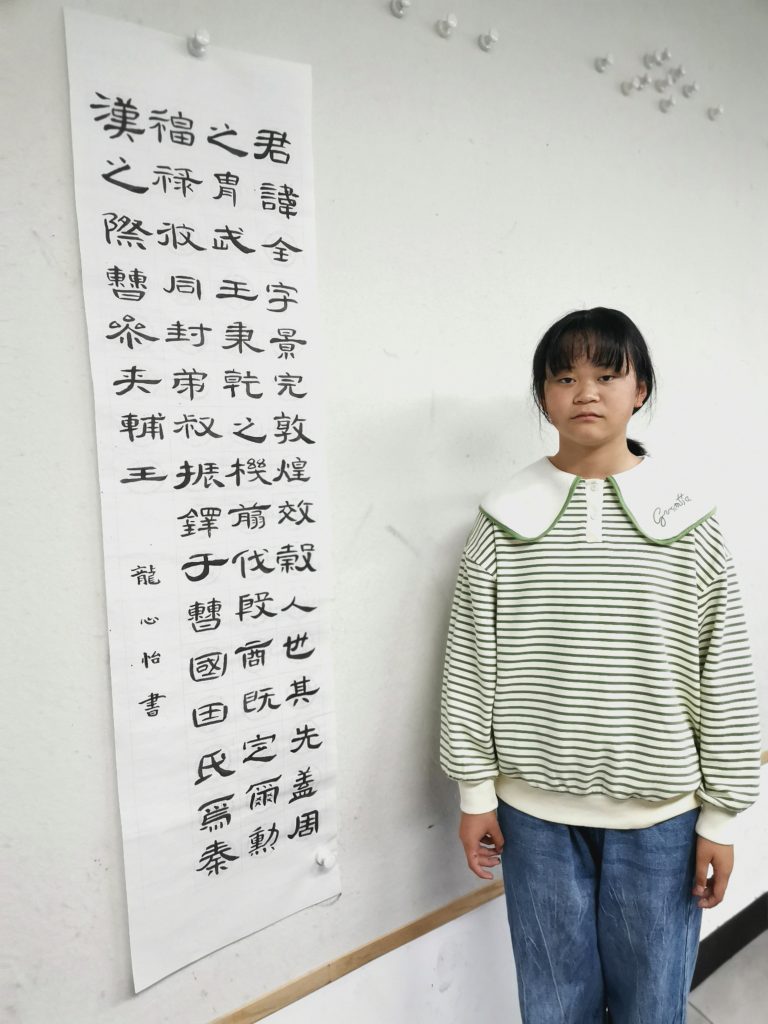 君諱全字景完敦煌效穀人世其先盖周
之胄武王秉乾之機翦伐殷商既定爾勳
福禄攸同封弟叔振鐸于曹國因氏爲秦
漢之際曹参夹輔王
龍心怡書